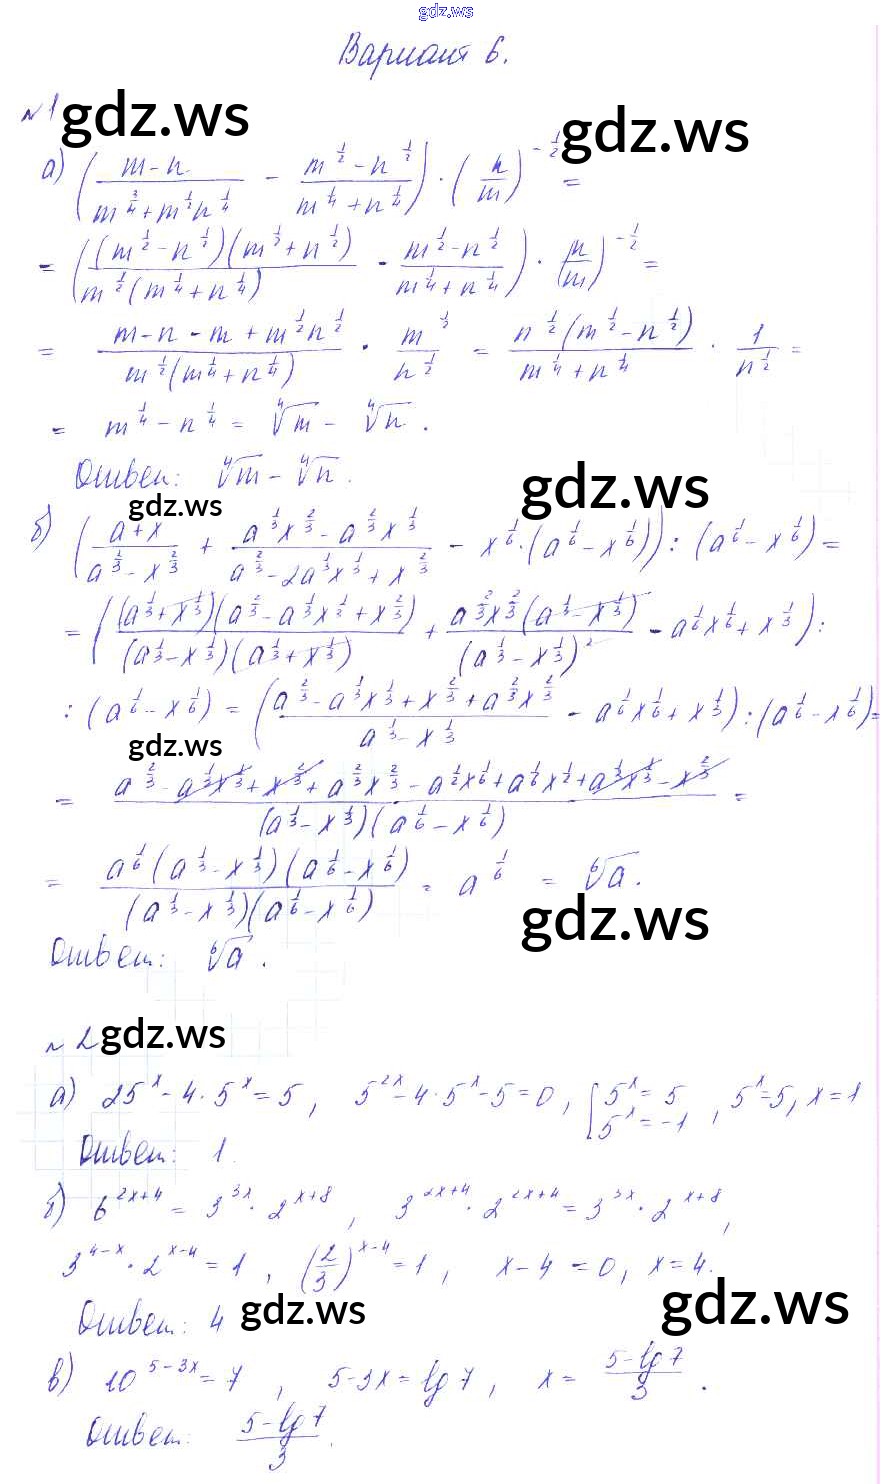 gdz.ws
Вариант 6.
№1 gdz.ws gdz.ws
а) ((m-n)/(m^(3/4)+m^(1/2)n^(1/4)) - (m^(1/2)-n^(1/2))/(m^(1/4)+n^(1/4))) · (n/m)^(-1/2) =
= (((m^(1/2)-n^(1/2))(m^(1/2)+n^(1/2)))/(m^(1/2)(m^(1/4)+n^(1/4))) - (m^(1/2)-n^(1/2))/(m^(1/4)+n^(1/4))) · (n/m)^(-1/2) =
= (m-n-m+m^(1/2)n^(1/2))/(m^(1/2)(m^(1/4)+n^(1/4))) · m^(1/2)/n^(1/2) = (n^(1/2)(m^(1/2)-n^(1/2)))/(m^(1/4)+n^(1/4)) · 1/n^(1/2) =
= m^(1/4)-n^(1/4) = ⁴√m - ⁴√n.
Ответ: ⁴√m - ⁴√n.
gdz.ws gdz.ws
б) ((a+x)/(a^(1/3)-x^(2/3)) + (a^(1/3)x^(2/3)-a^(2/3)x^(1/3))/(a^(2/3)-2a^(1/3)x^(1/3)+x^(2/3)) - x^(1/6)·(a^(1/6)-x^(1/6))) : (a^(1/6)-x^(1/6)) =
= (((a^(1/3)+x^(1/3))(a^(2/3)-a^(1/3)x^(1/3)+x^(2/3)))/((a^(1/3)-x^(1/3))(a^(1/3)+x^(1/3))) + (a^(2/3)x^(2/3)(a^(1/3)-x^(1/3)))/(a^(1/3)-x^(1/3))^2 - a^(1/6)x^(1/6)+x^(1/3)) :
: (a^(1/6)-x^(1/6)) = ((a^(2/3)-a^(1/3)x^(1/3)+x^(2/3)+a^(2/3)x^(2/3))/(a^(1/3)-x^(1/3)) - a^(1/6)x^(1/6)+x^(1/3)) : (a^(1/6)-x^(1/6)) =
gdz.ws
= (a^(2/3)-a^(1/3)x^(1/3)+x^(2/3)+a^(2/3)x^(2/3)-a^(1/2)x^(1/6)+a^(1/6)x^(1/2)+a^(1/3)x^(1/3)-x^(2/3))/((a^(1/3)-x^(1/3))(a^(1/6)-x^(1/6))) =
= (a^(1/6)(a^(1/3)-x^(1/3))(a^(1/6)-x^(1/6)))/((a^(1/3)-x^(1/3))(a^(1/6)-x^(1/6))) = a^(1/6) = ⁶√a.
gdz.ws
Ответ: ⁶√a.
№2 gdz.ws
а) 25^x - 4·5^x = 5, 5^(2x) - 4·5^x - 5 = 0, [5^x = 5; 5^x = -1, 5^x = 5, x = 1
Ответ: 1.
б) 6^(2x+4) = 3^(3x)·2^(x+8), 3^(2x+4)·2^(2x+4) = 3^(3x)·2^(x+8),
3^(4-x)·2^(x-4) = 1, (2/3)^(x-4) = 1, x-4 = 0, x = 4.
Ответ: 4 gdz.ws gdz.ws
в) 10^(5-3x) = 7, 5-3x = lg 7, x = (5-lg 7)/3.
Ответ: (5-lg 7)/3.